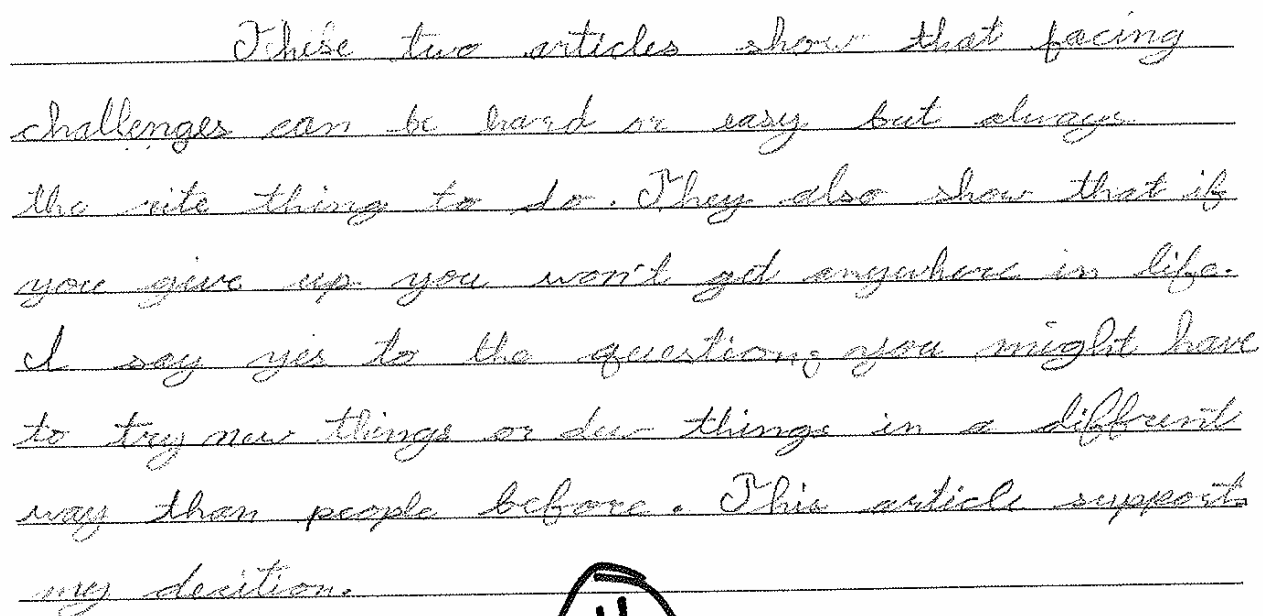 These two articles show that facing
challenges can be hard or easy but always
the rite thing to do. They also show that if
you give up you won't get anywhere in life.
I say yes to the question; you might have
to try new things or dew things in a diffrent
way than people before. This article supports
my decition.
4